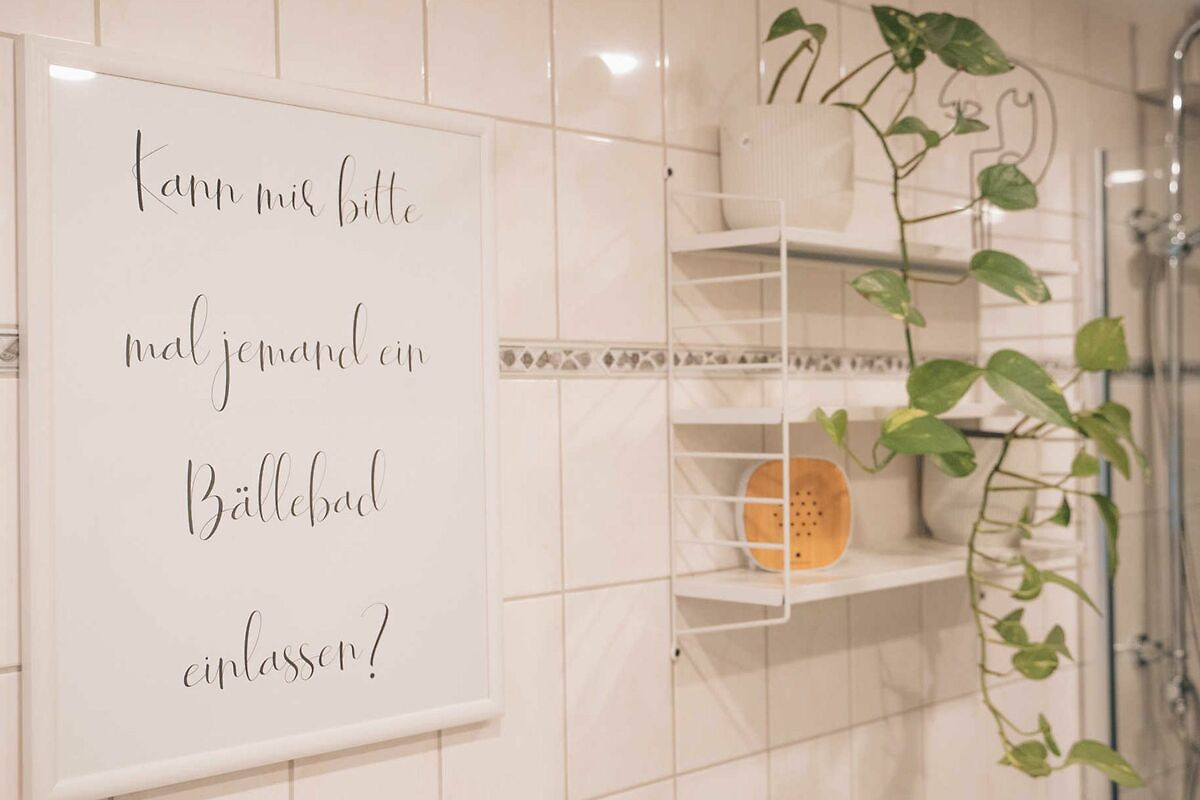 Kann mir bitte
mal jemand ein
Bällebad
einlassen?